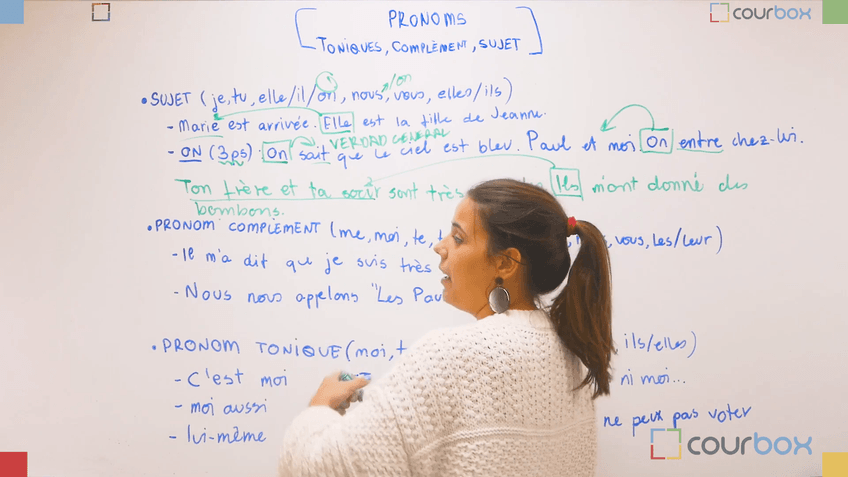 courbox
PRONOMS
TONIQUES, COMPLÈMENT, SUJET
• SUJET (je, tu, elle/il/on, nous, vous, elles/ils)
/on
- Marie est arrivée. Elle est la fille de Jeanne.
VERDAD GENERAL
- ON (3ps): On sait que le ciel est bleu. Paul et moi On entre chez-lui.
Ton frère et ta sœur sont très Ils m'ont donné des
bombons.
• PRONOM COMPLÈMENT (me, moi, te, vous, les/leur)
- Il m'a dit que je suis très
- Nous nous appelons "Les
• PRONOM TONIQUE (moi, ils/elles)
- C'est moi ni moi...
- moi aussi
ne peux pas voter
- lui-même
courbox